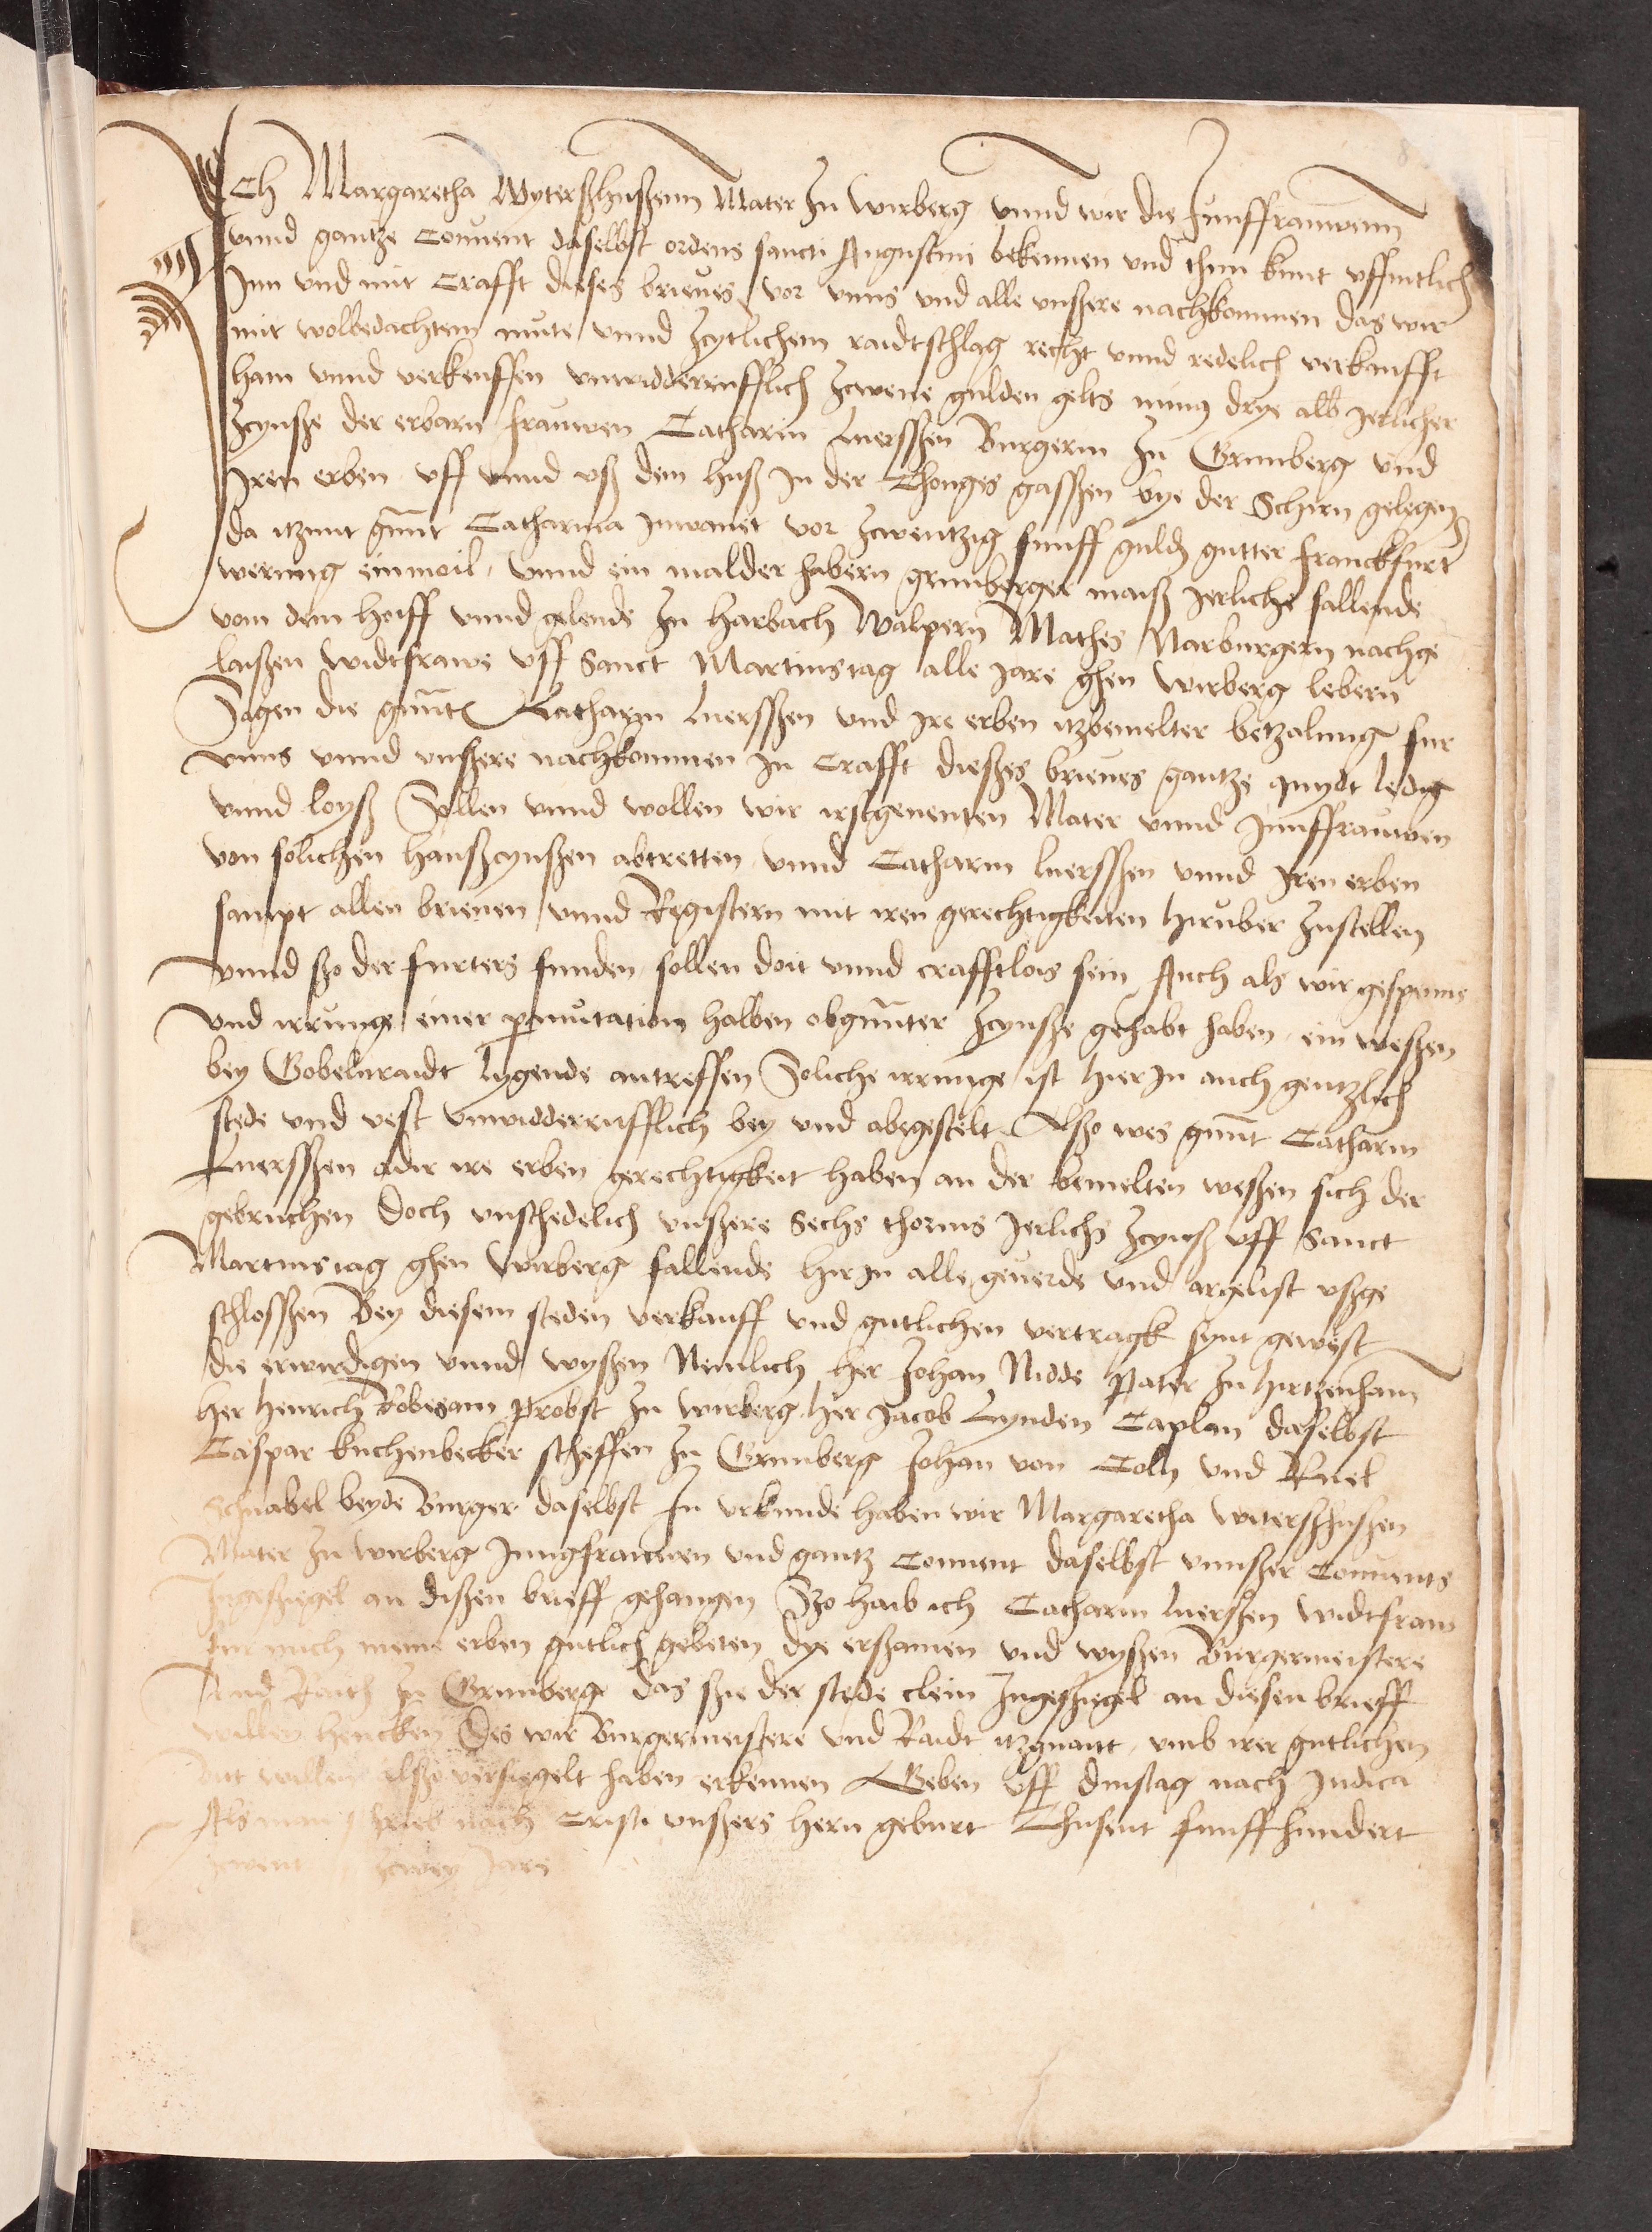 Ich Margaretha Wyterßhußenn Mater zu Wirberg vnnd wir die Junffrauwenn
vnnd gantze Conuent daselbst ordens sancti Augustini bekennen vnd thun kunt vffintlich
Inn vnd mit Crafft dieses brieues vor vnns vnd alle vnßere nachkommen das wir
mit wolbedachtem mute vnnd zcytlichem raidtschlag recht vnnd redelich verkaufft
ham vnnd verkeuffen vnwidderrufflich zcwene gulden gelts minus drye alb jerlicher
zcynße der erbarn frauwen Catharin Luerssßen Burgerin zu Grunberg vnd
Iren erben vff vnnd vß dem huß in der Thonges gassßen bye der Schirn gelegen
da itzunt gnnt Catharina inwanet vor zcwentzig funff guld gutter franckfurt
werung einmoil, vnnd ein malder habern grunberger maiß jerliche fallende
von dem hoiff vnnd gelende zu Harbach Walpern Mathes Marburgern nachge
laißen widtfrawe vff Sanct Martinstag alle jare ghen Wirberg lebern
Sagen die gnnt Catharin Luerssßen vnd ire erben itzbemelter betzalung fur
vnns vnnd vnßere nachkommen in Crafft dießes brieues gantze quydt ledig
vnnd loyß Sollen vnnd wollen wir irstgenenten Mater vnnd Junffrauwen
von solichen haußzcynßen abtretten vnnd Catharin Luerssßen vnnd Iren erben
sampt allen brieuen vnnd Registern mit iren gerechtigkeiten hiruber zustellen
vnnd ßo der furters funden sollen doit vnnd crafftlois sein Auch als wir gespenne
vnd irrunge einer permutation halben obgnnter zcynße gehabt haben ein weßen
bey Gobelnraidt lygende antreffen Soliche irrunge ist hierin auch gentzlich
stede vnd vest vnwidderrufflich bey vnd abegestelt Also wes gnnt Catharin
Luerssßen adir ire erben gerechtigkeit haben an der bemelten weßen sich der
gebruchen Doch vnschedelich vnßere Sechs thornis jerlichs zcynß vff Sanct
Martinstag ghen Wirberg fallende hirin alle geuerde vnd argelist vßge
schlossßen Bey diesem steden verkauff vnd gutlichen vertragk synt gewest
die erwirdigen vnnd wyßen Nemlich her Johan Nidde Pater zu Hirtzenham
her Henrich Robesam Probst zu Wirberg her Jacob Lynden Caplan daselbst
Caspar Kuchenbecker scheffen zu Grunberg Johan von Coln vnd Ruel
Schnabel beyde Burger daselbst In vrkunde haben wir Margaretha Witerßhußen
Mater zu Wirberg Jungfrauwen vnd gantz Conuent daselbst vnnßer Conuents
Ingeßiegel an dißen brieff gehangen Szo haib ich Catharin Luerßen widtfraw
fur mich meine erben gutlich gebeten dye erßamen vnd wyßen Burgermeistere
vnd Raith zu Grunberg das ßie der stede clein Ingeßiegel an diesen brieff
willen hencken Des wir Burgermeistere vnd Raidt itzgnant vmb irer gutlichen
bit willen also versiegelt haben erkennen Geben vff dinstag nach Judica
Als man schrieb nach Cristi vnßers hern geburt Thusent funffhundert
zcwent zcwey jare